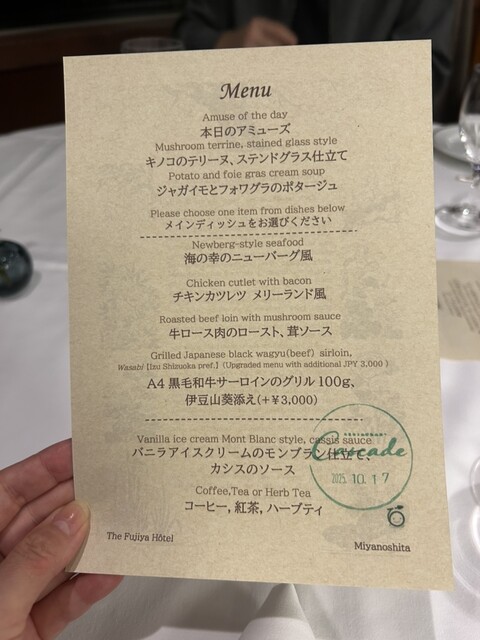 Menu
Amuse of the day
本日のアミューズ
Mushroom terrine, stained glass style
キノコのテリーヌ、ステンドグラス仕立て
Potato and foie gras cream soup
ジャガイモとフォワグラのポタージュ
Please choose one item from dishes below
メインディッシュをお選びください
Newberg-style seafood
海の幸のニューバーグ風
Chicken cutlet with bacon
チキンカツレツ メリーランド風
Roasted beef loin with mushroom sauce
牛ロース肉のロースト、茸ソース
Grilled Japanese black wagyu(beef) sirloin,
Wasabi【Izu Shizuoka pref.】(Upgraded menu with additional JPY 3,000 )
A4 黒毛和牛サーロインのグリル 100g、
伊豆山葵添え(+¥3,000)
Vanilla ice cream Mont Blanc style, cassis sauce
バニラアイスクリームのモンブラン仕立て、
カシスのソース
Cascade
2025. 10. 17
Coffee,Tea or Herb Tea
コーヒー, 紅茶, ハーブティ
The Fujiya Hôtel
Miyanoshita